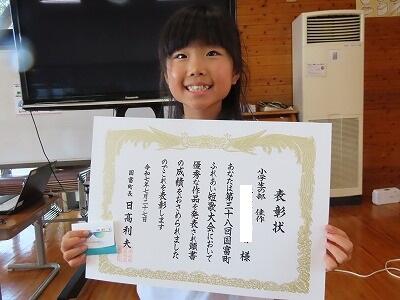 表彰状
小学生の部 佳作
様
あなたは第三十八回国富町
ふれあい短歌大会において
優秀な作品を発表され頭書
の成績をおさめられました
のでこれを表彰します
令和七年七月二十七日
国富町長 日高利夫